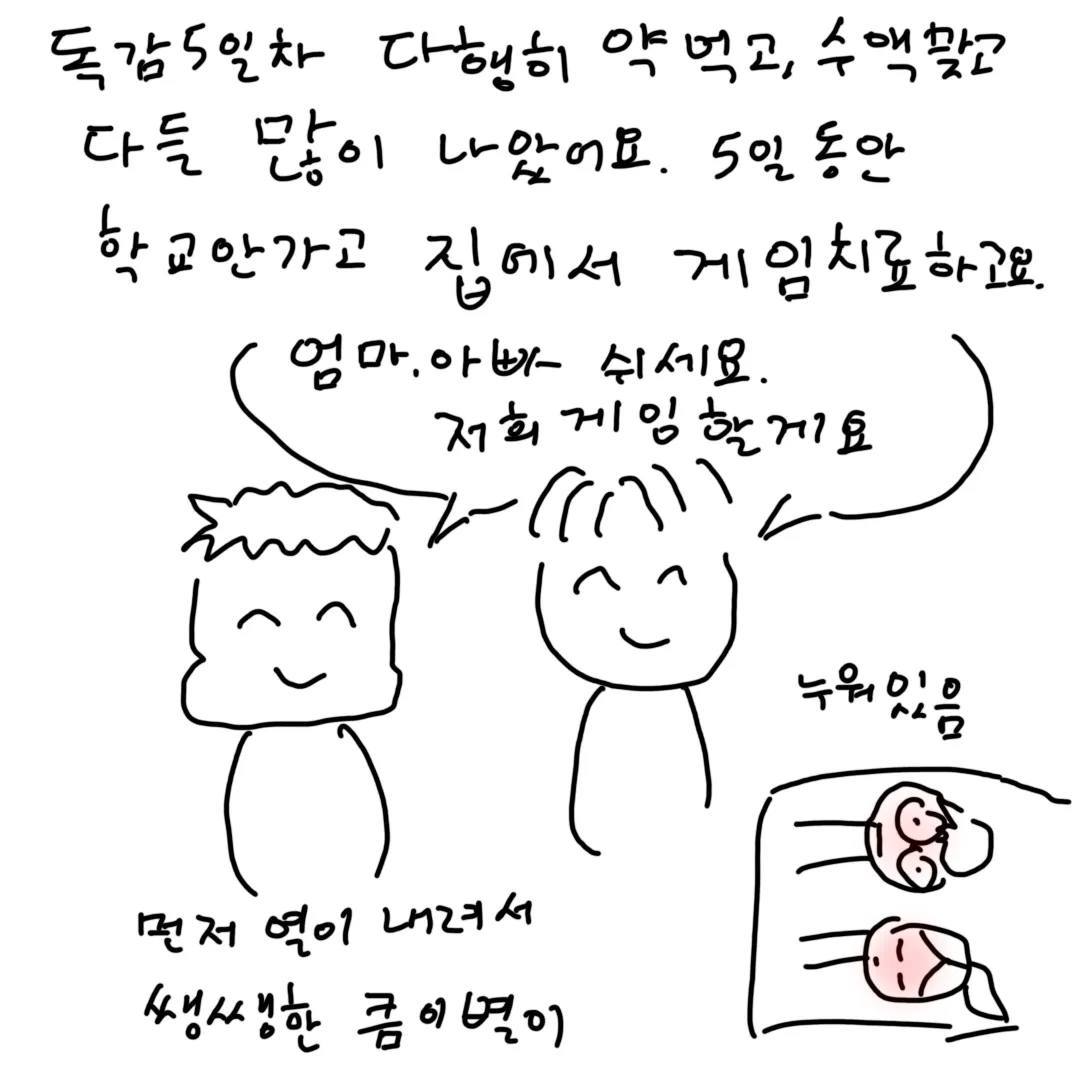 독감5일차 다행히 약먹고, 수액맞고
다들 많이 나았어요. 5일동안
학교안가고 집에서 게임치료하고요.
엄마, 아빠 쉬세요.
저희 게임할게요
누워있음
먼저 열이 내려서
쌩쌩한 큼이별이